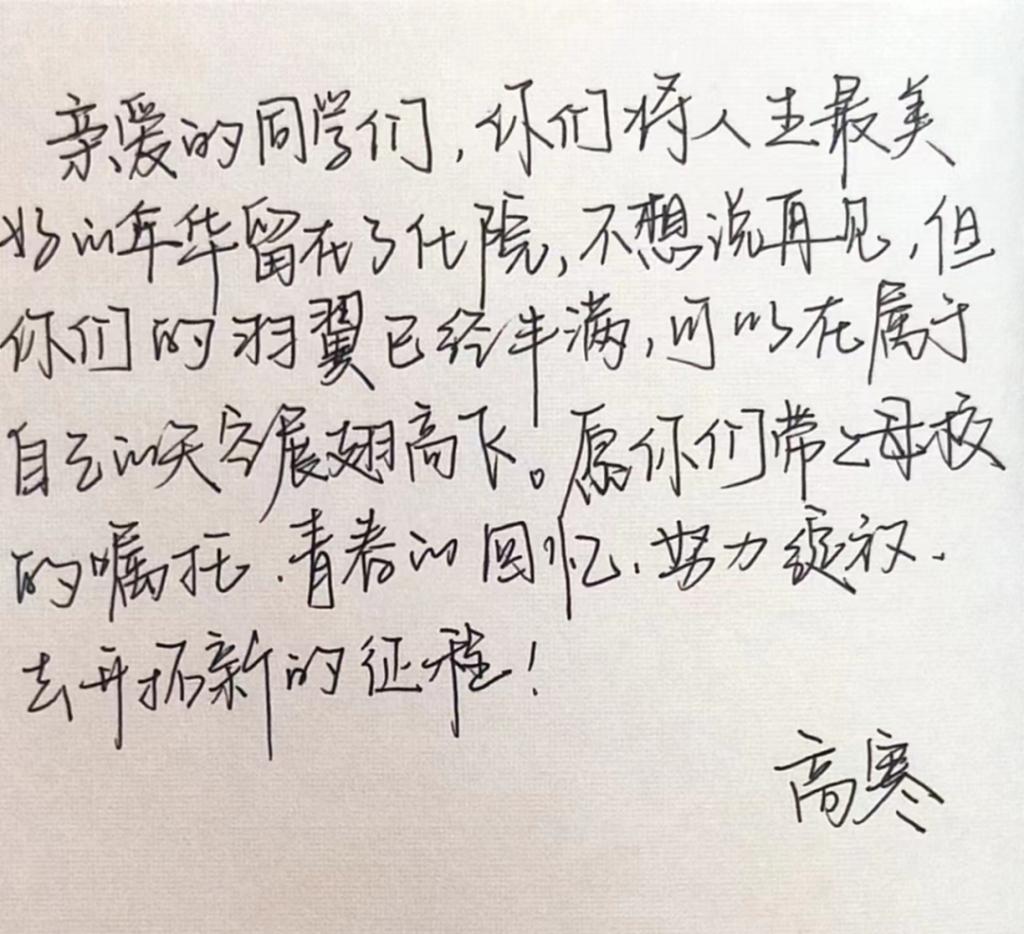 亲爱的同学们,你们将人生最美
好的年华留在了化院,不想说再见,但
你们的羽翼已经丰满,可以在属于
自己的天空展翅高飞。愿你们带上母校
的嘱托、青春的回忆、努力绽放、
去开拓新的征程!
高寒